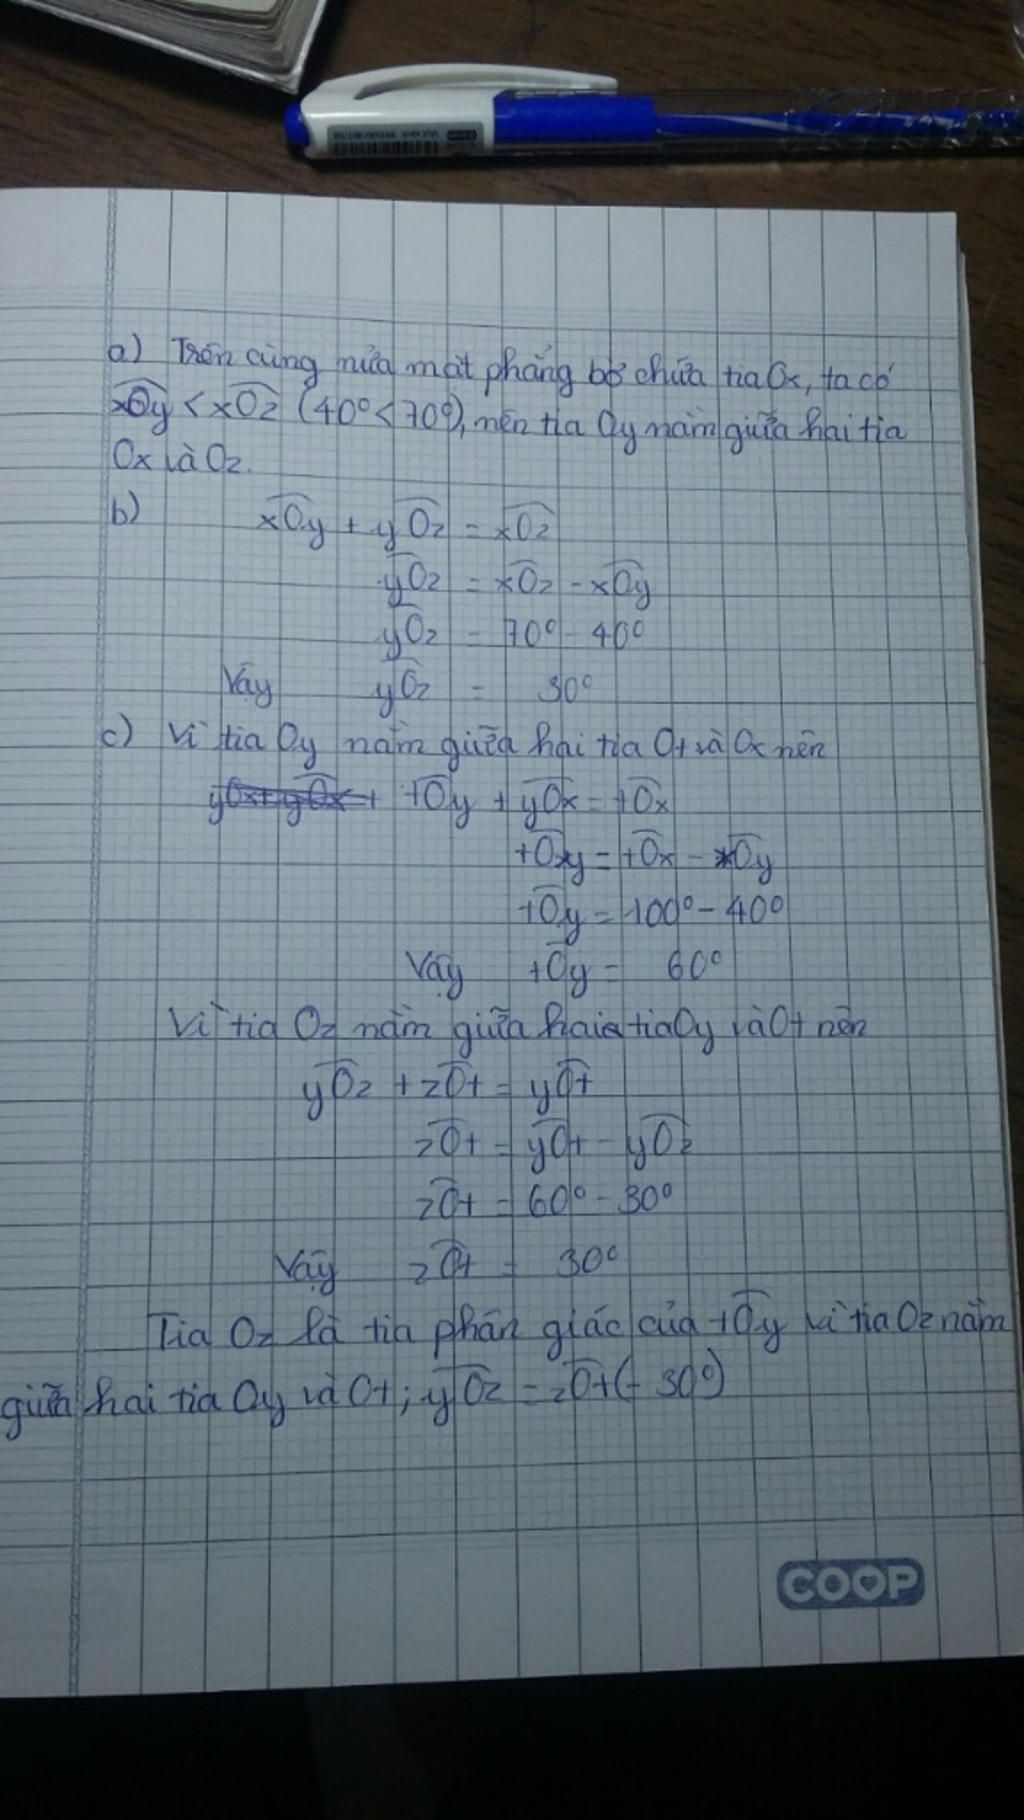 a) Trên cùng nửa mặt phẳng bờ chứa tia Ox, ta có
xOy < xOz (40° < 70°), nên tia Oy nằm giữa hai tia
Ox và Oz.
b) xOy + yOz = xOz
yOz = xOz - xOy
yOz = 70° - 40°
Vậy yOz = 30°
c) Vì tia Oy nằm giữa hai tia Ot và Ox nên
tOy + yOx = tOx
tOy = tOx - xOy
tOy = 100° - 40°
Vậy tOy = 60°
Vì tia Oz nằm giữa hai tia Oy và Ot nên
yOz + zOt = yOt
zOt = yOt - yOz
zOt = 60° - 30°
Vậy zOt = 30°
Tia Oz là tia phân giác của tOy vì tia Oz nằm
giữa hai tia Oy và Ot; yOz = zOt (= 30°)
COOP